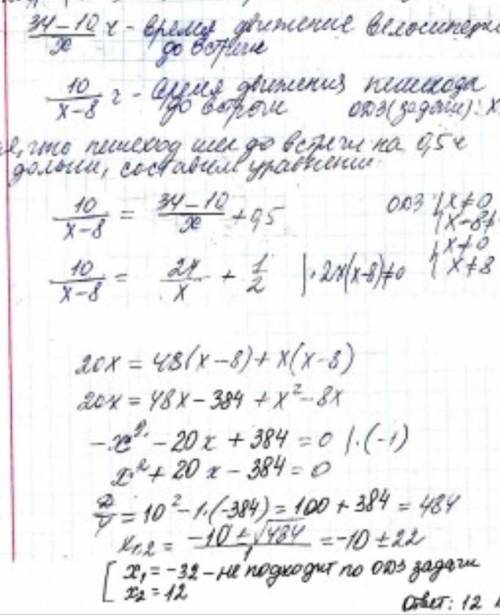 34-10/x ч - время движение велосипеди
до встречи
10/x-8 ч - время движения пешехода
до встречи ОДЗ(задачи): x
е, что пешеход шел до встречи на 0,5 ч
дольше, составим уравнение:
10/x-8 = 34-10/x + 0,5 ОДЗ { x≠0
{ x-8≠
{ x≠0
{ x≠8
10/x-8 = 24/x + 1/2 |·2x(x-8)≠0
20x = 48(x-8) + x(x-8)
20x = 48x - 384 + x² - 8x
-x² - 20x + 384 = 0 |·(-1)
x² + 20x - 384 = 0
D/4 = 10² - 1·(-384) = 100 + 384 = 484
x1,2 = -10 ± √484 / 1 = -10 ± 22
[ x1 = -32 - не подходит по ОДЗ задачи
x2 = 12
Ответ: 12